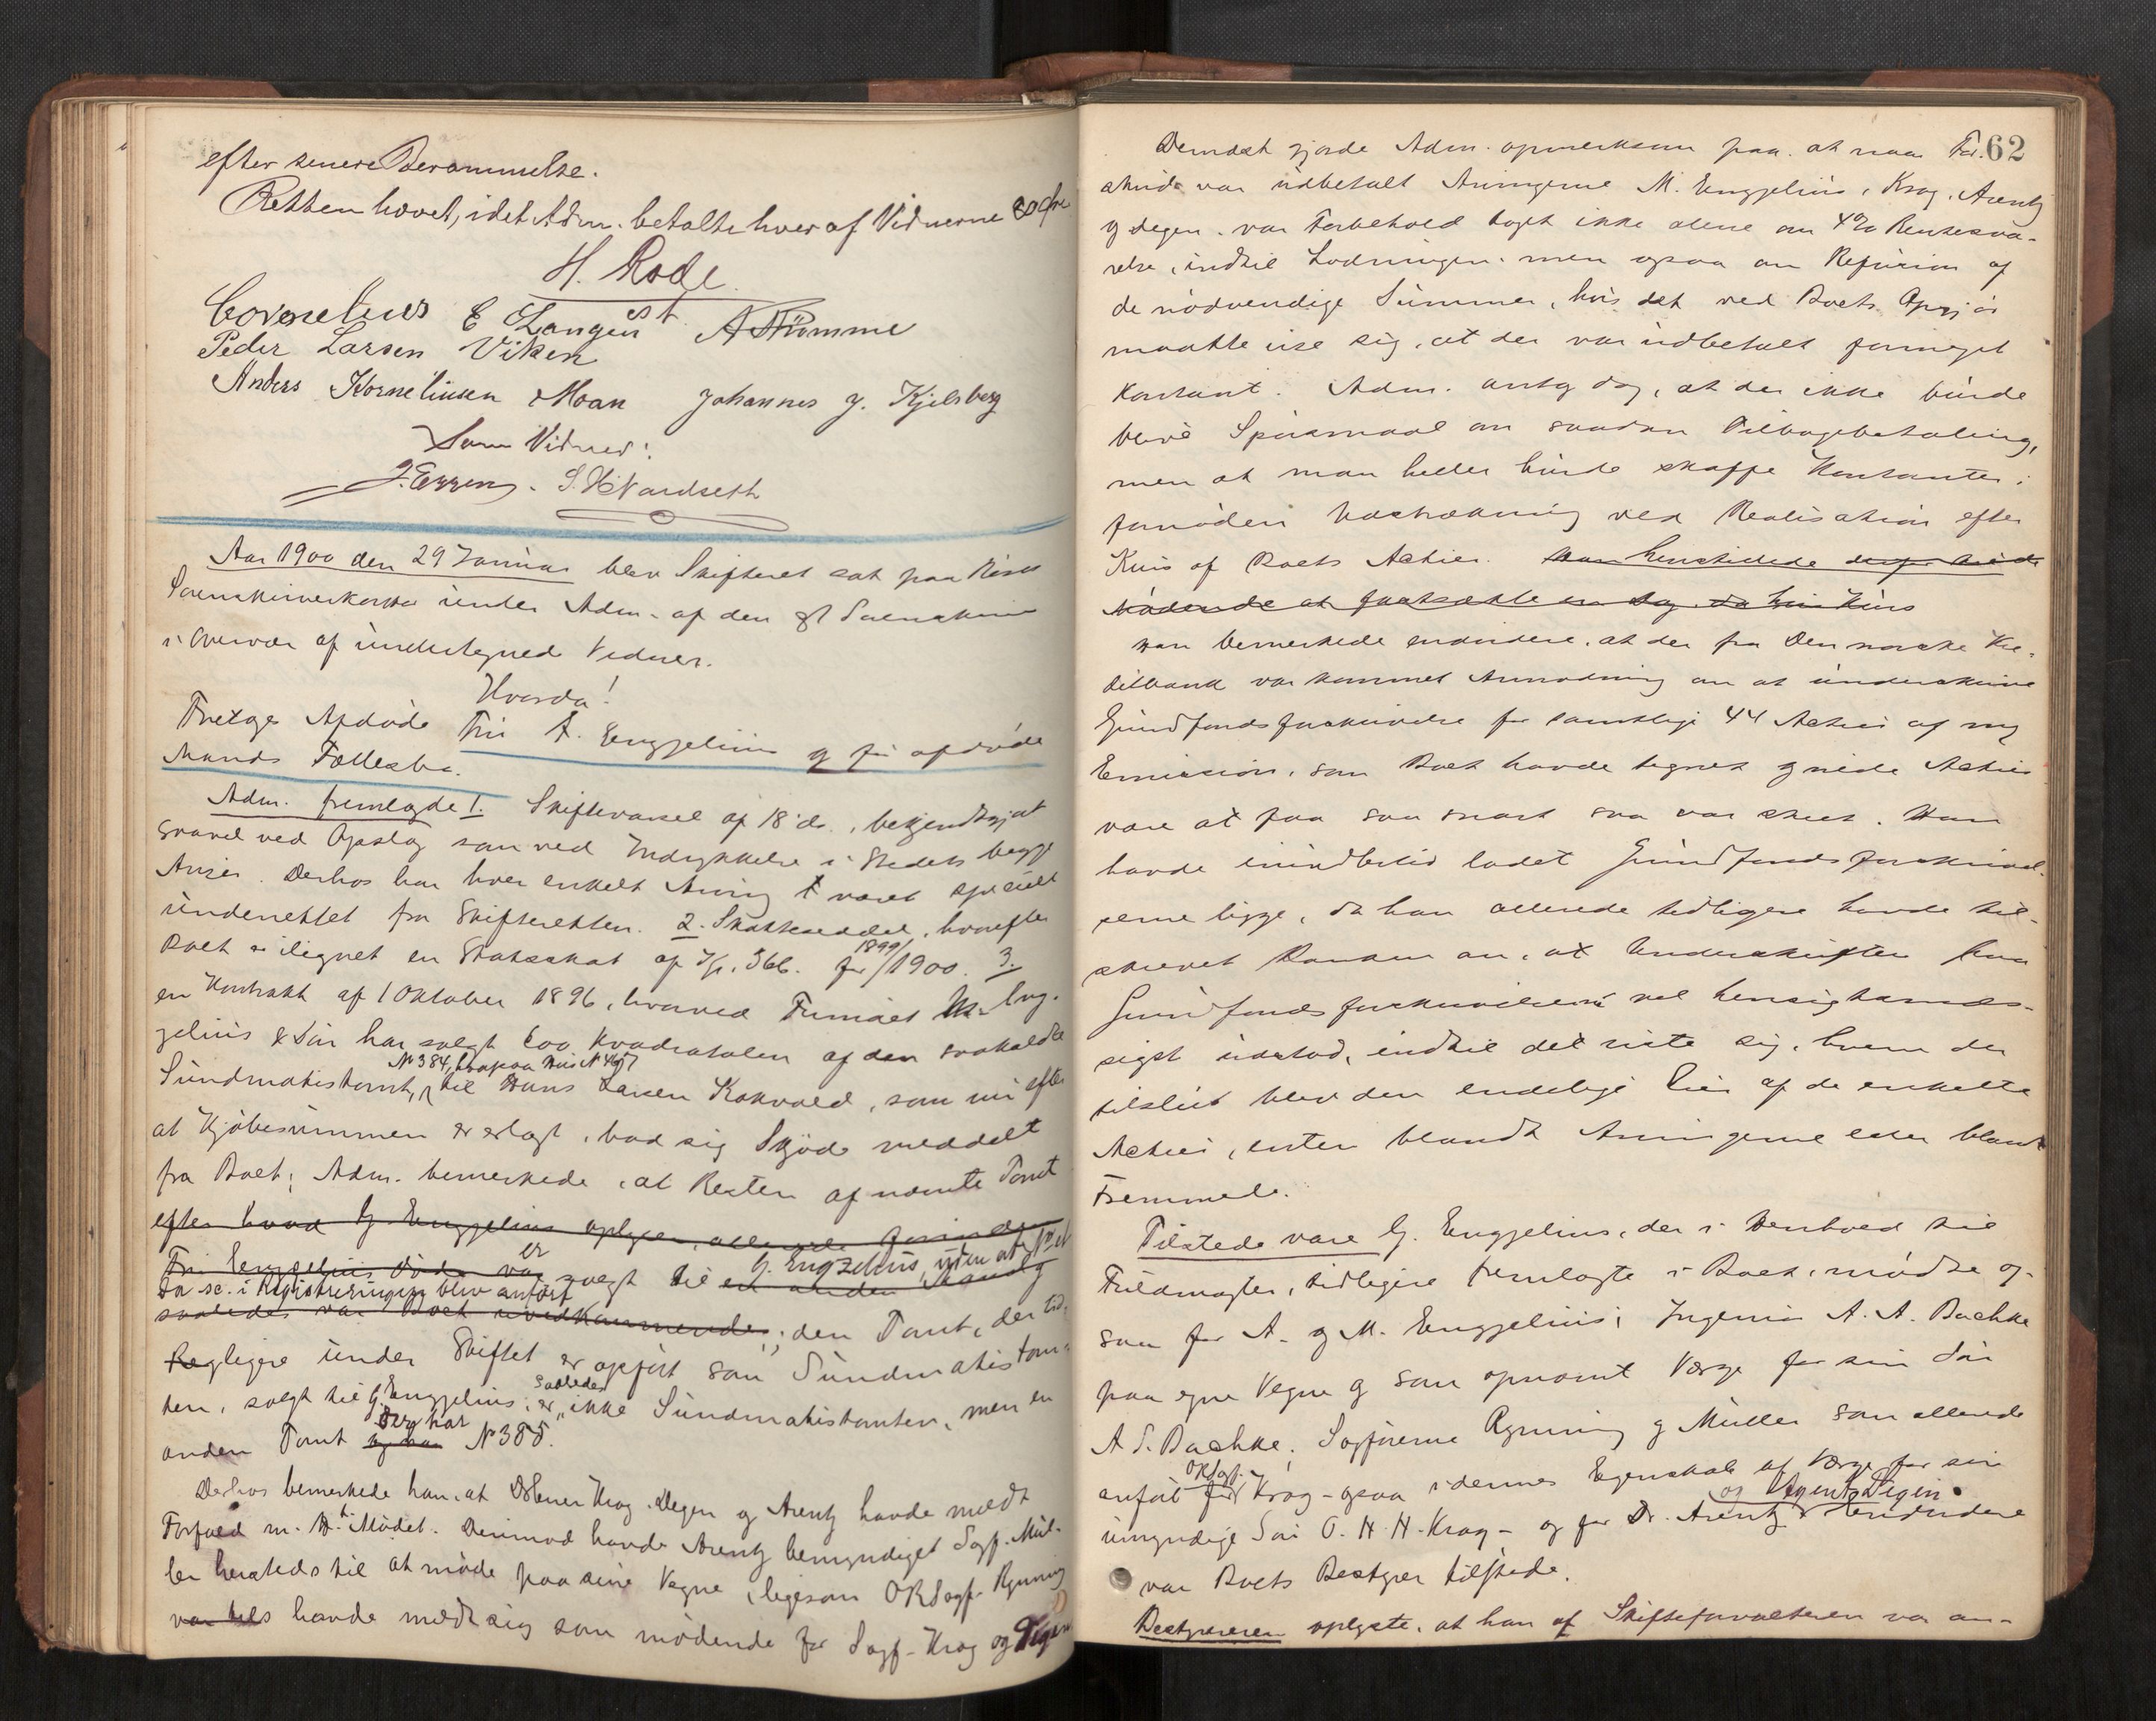 efter senere Berammelse.
Retten hævet, idet Adm. betalte hver af Vidnerne 80 Øre
H. Rode
Cornelius E Langen st. A Stümme
Peder Larsen Viken
Anders Korneliusen Moan Johannes J. Kjelsberg
Som Vidner:
S. H Nardseth
Aar 1900 den 29 Januar blev Skifteret sat paa Risør
Sorenskriverkontor under Adm. af den
i Overvær af undertegnede Vidner.
Hvorda!
Foretoges Afdøde Fru A. Enggelius og før afdøde
Mands Fællesbo.
Adm. fremlagde 1. Skiftevarsel af 18 ds., bekjendtgjort
saavel ved Opslag som ved Indrykkelse i Stedets begge
Aviser. Derhos har hver enkelt Arving været specielt
underrettet fra Skifteretten. 2. Skatteseddel, hvorefter
Boet er ilignet en Statsskat af Kr. 366. for 1899/1900. 3.
en Kontrakt af 1 Oktober 1896, hvorved Firmaet M. Eng-
gelius & Søn har solgt 600 Kvadratalen af den saakaldte
N° 384, hvorpaa Hus N°
Sundmatistomt, til Hans Larsen Kokvold, som nu efter
at Kjøbesummen er erlagt, bad sig Skjøde meddelt
fra Boet; Adm. bemerkede, at Resten af nævnte Tomt
efter hvad G. Enggelius oplyser, allerede førend
Fru Enggelius døde var er solgt til en anden G. Enggelius, uden at Boet
Da sc. i Registreringen blev anført
saaledes var Boet uvedkommende; den Tomt, der tid-
ligere under Skiftet er opført som Sundmatistom-
ten, solgt til G. Enggelius, er saaledes ikke Sundmatistomten, men en
anden Tomt N° 385.
Derhos bemerkede han, at DHerrer Krog, Degen og Arentz havde meldt
Forfald m. H. t. Mødet. Derimod havde Arentz bemyndiget Sagf. Mül-
ler hersteds til at møde paa sine Vegne, ligesom ORSagf. Rynning
havde meldt sig som mødende for Sagf. Krog og Degen
62
Dernæst gjorde Adm. opmerksom paa, at naar For-
skud var udbetalt Arvingerne M. Enggelius, Krog, Arentz
og Degen, var Forbehold taget ikke alene om 4% Rentesva-
relse, indtil Lodningen, men ogsaa om Refusion af
de nødvendige Summer, hvis det ved Boets Opgjør
maatte vise sig, at der var udbetalt formeget
kontant. Adm. antog dog, at der ikke burde
blive Spørsmaal om saadan Tilbagebetaling,
men at man heller burde skaffe Kontanter i
fornøden Udstrækning ved Realisation efter
Kurs af Boets Aktier. Han henstillede derfor til de
Mødende at fastsætte en Dag, da
Han bemerkede endvidere, at der fra Den norske Kre-
ditbank var kommet Anmodning om at underskrive
Grundfondsforskrivelse for samtlige 44 Aktier af ny
Emission, som Boet havde tegnet
være at faa saa snart saa var skeet. Han
havde imidlertid ladet Grundfondsforskrivel-
serne ligge, da han allerede tidligere havde til-
skrevet Banken om, at Underskriften paa
Grundfondsforskrivelserne vel hensigtsmæs-
sigst udstod, indtil det viste sig, hvem der
tilslut blev den endelige Eier af de enkelte
Aktier, enten blandt Arvingerne eller blandt
Fremmede.
Tilstede vare G. Enggelius, der i Henhold til
Fuldmagter, tidligere fremlagte i Boet, mødte og-
saa for A. og M. Enggelius; Ingeniør A. A. Bachke
paa egne Vegne og som opnævnt Værge for sin Søn
A S. Bachke; Sagførerne Rynning og Müller som allerede
anført for ORSagf. Krog - ogsaa i dennes Egenskab af Værge for sin
umyndige Søn O. H. H. Krog - og for Dr. Arentz og Agent Degen. Endvidere
var Boets Bestyrer tilstede.
Bestyreren oplyste, at han af Skifteforvalteren var an-